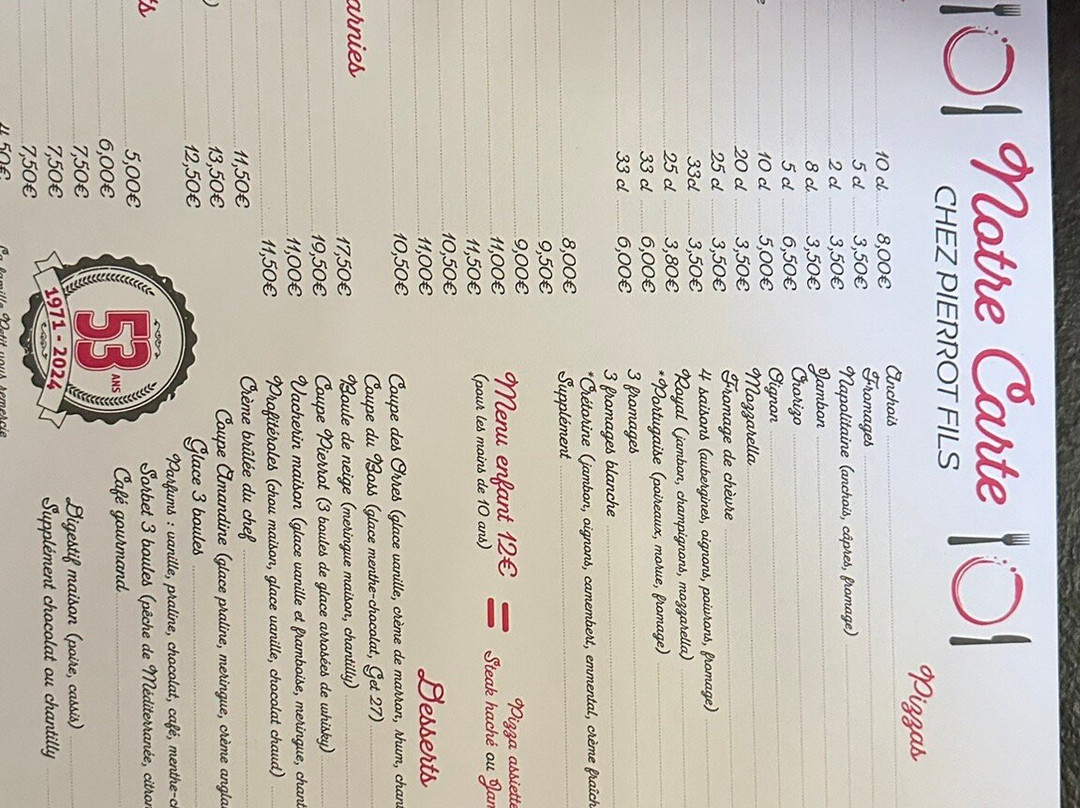 Notre Carte
CHEZ PIERROT FILS
10 cl 8,00€
5 cl 3,50€
2 cl 3,50€
8 cl 3,50€
5 cl 6,50€
10 cl 5,00€
20 cl 3,50€
25 cl 3,50€
33cl 3,50€
25 cl 3,80€
33 cl 6,00€
33 cl 6,00€
8,00€
9,50€
9,00€
11,00€
11,50€
10,50€
11,00€
10,50€
arnies
17,50€
19,50€
11,00€
11,50€
11,50€
13,50€
12,50€
ts
5,00€
6,00€
7,50€
7,50€
7,50€
4,50€
Pizzas
Anchois
Fromages
Napolitaine (anchois, câpres, fromage)
Jambon
Chorizo
Oignon
Mozzarella
Fromage de chèvre
4 saisons (aubergines, oignons, poivrons, fromage)
Royal (jambon, champignons, mozzarella)
*Portugaise (poireaux, morue, fromage)
3 fromages
3 fromages blanche
*Crétorine (jambon, oignons, camembert, emmental, crème fraîch
Supplément
Menu enfant 12€ =
(pour les moins de 10 ans)
Pizza assiette
Steak haché ou Jam
Desserts
Coupe des Orres (glace vanille, crème de marron, rhum, chan
Coupe du Boss (glace menthe-chocolat, Get 27)
Boule de neige (meringue maison, chantilly)
Coupe Pierrot (3 boules de glace arrosées de whisky)
Vacherin maison (glace vanille et framboise, meringue, chant
Profiteroles (chou maison, glace vanille, chocolat chaud)
Crème brûlée du chef
Coupe Amandine (glace praline, meringue, crème angla
Glace 3 boules
Parfums : vanille, praline, chocolat, café, menthe-c
Sorbet 3 boules (pêche de Méditerranée, citron
Café gourmand
Digestif maison (poire, cassis)
Supplément chocolat ou chantilly
53 ANS
1971 - 2024
La famille Petit vous remercie